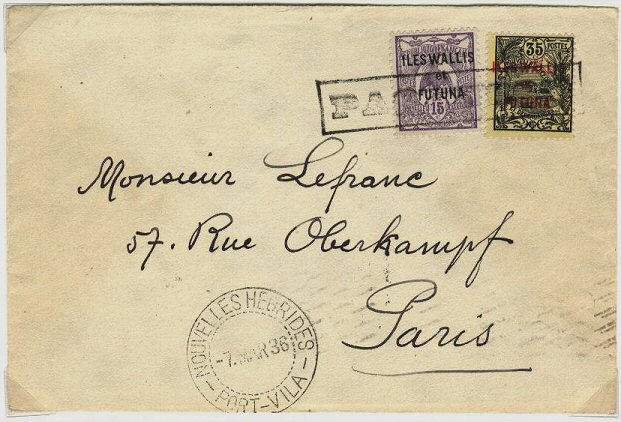 ILES WALLIS
et
FUTUNA
15
35
POSTES
ILES WALLIS
FUTUNA
Monsieur Lefranc
57. Rue Oberkampf
Paris
NOUVELLES HEBRIDES
-7.MAR 36
PORT-VILA